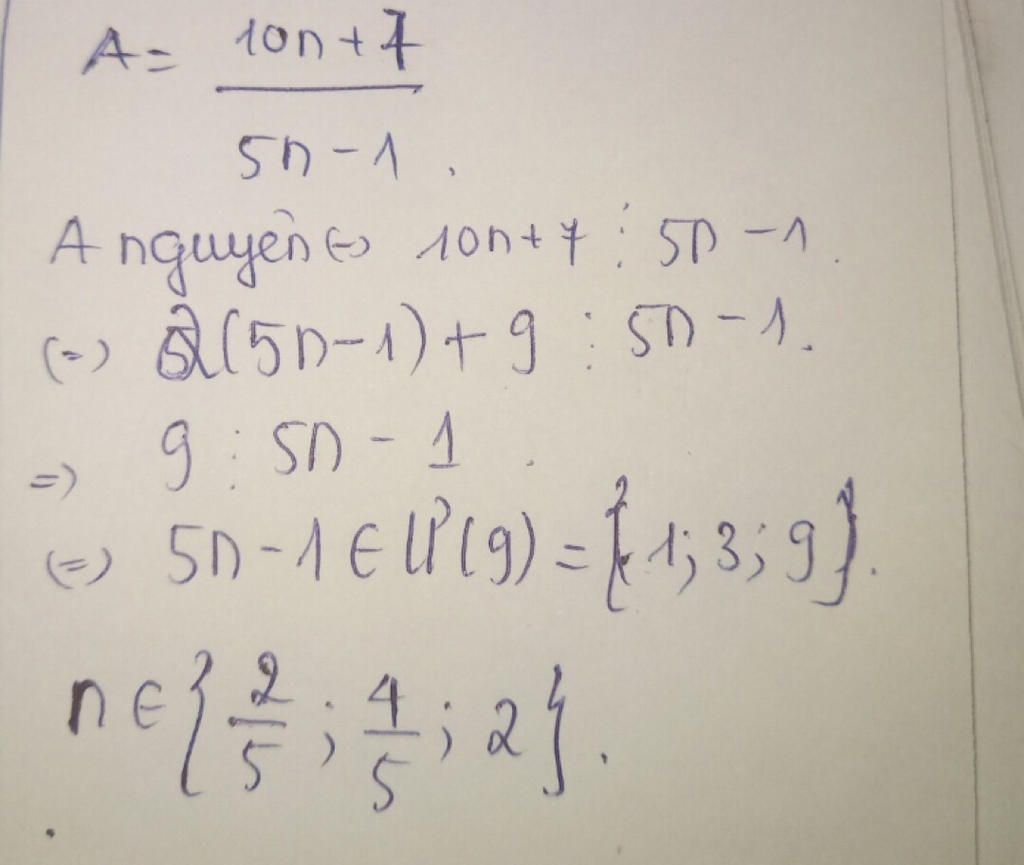 A = 10n + 7
5n - 1 .
A nguyên (=) 10n + 7 ⋮ 5n - 1 .
(=) 2(5n - 1) + 9 ⋮ 5n - 1 .
=) 9 ⋮ 5n - 1 .
(=) 5n - 1 ∈ Ư(9) = { 1; 3; 9 } .
n ∈ { 2/5 ; 4/5 ; 2 } .